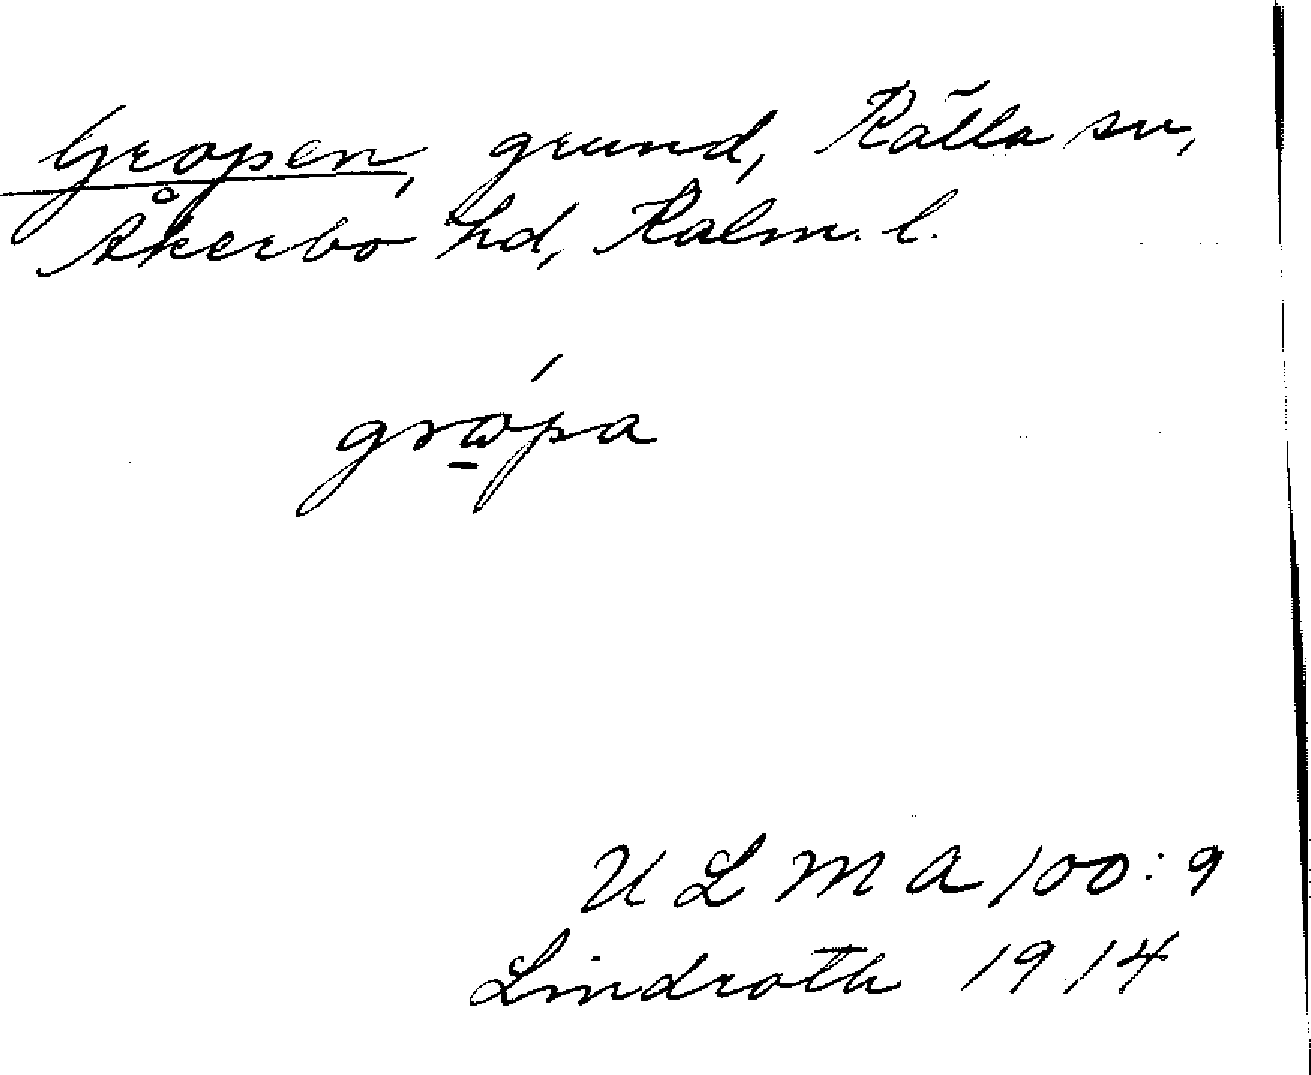 Gropen, grund, Källa sn,
Åkerbo hd, Kalm. l.
grώ̠pa
ULMA 100:9
Lindroth 1914